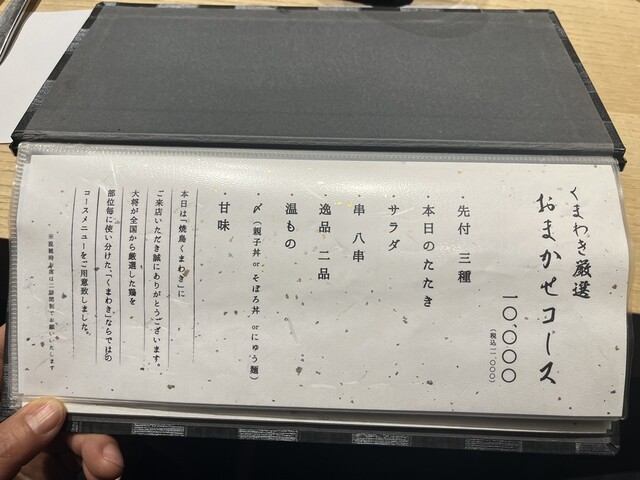 くまわき厳選
おまかせコース
一〇、〇〇〇
(税込一一、〇〇〇)
・先付 三種
・本日のたたき
・サラダ
・串 八串
・逸品 二品
・温もの
・〆(親子丼 or そぼろ丼 or にゅう麺)
・甘味
本日は「焼鳥くまわき」に
ご来店いただき誠にありがとうございます。
大将が全国から厳選した鶏を
部位毎に使い分けた、「くまわき」ならではの
コースメニューをご用意致しました。
お席は二時間制でお願いいたします